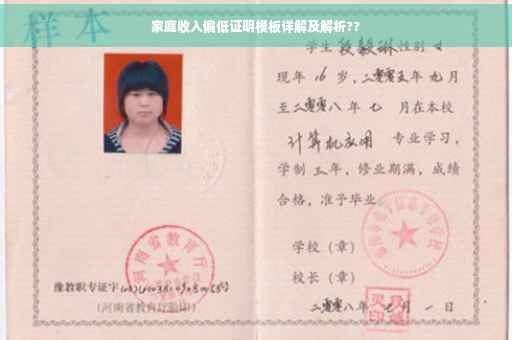 家庭收入偏低证明模板详解及解析??
样本
学生 段毅琳 性别 女
现年 16 岁,二零零五年 九 月
至二零零八年 七 月在本校
计算机应用 专业学习,
学制 三 年,修业期满,成绩
合格,准予毕业
学校(章)
校长(章)
二零零八年 七 月 一 日
河南省教育厅
豫教职专证字
(河南省教育厅验印)